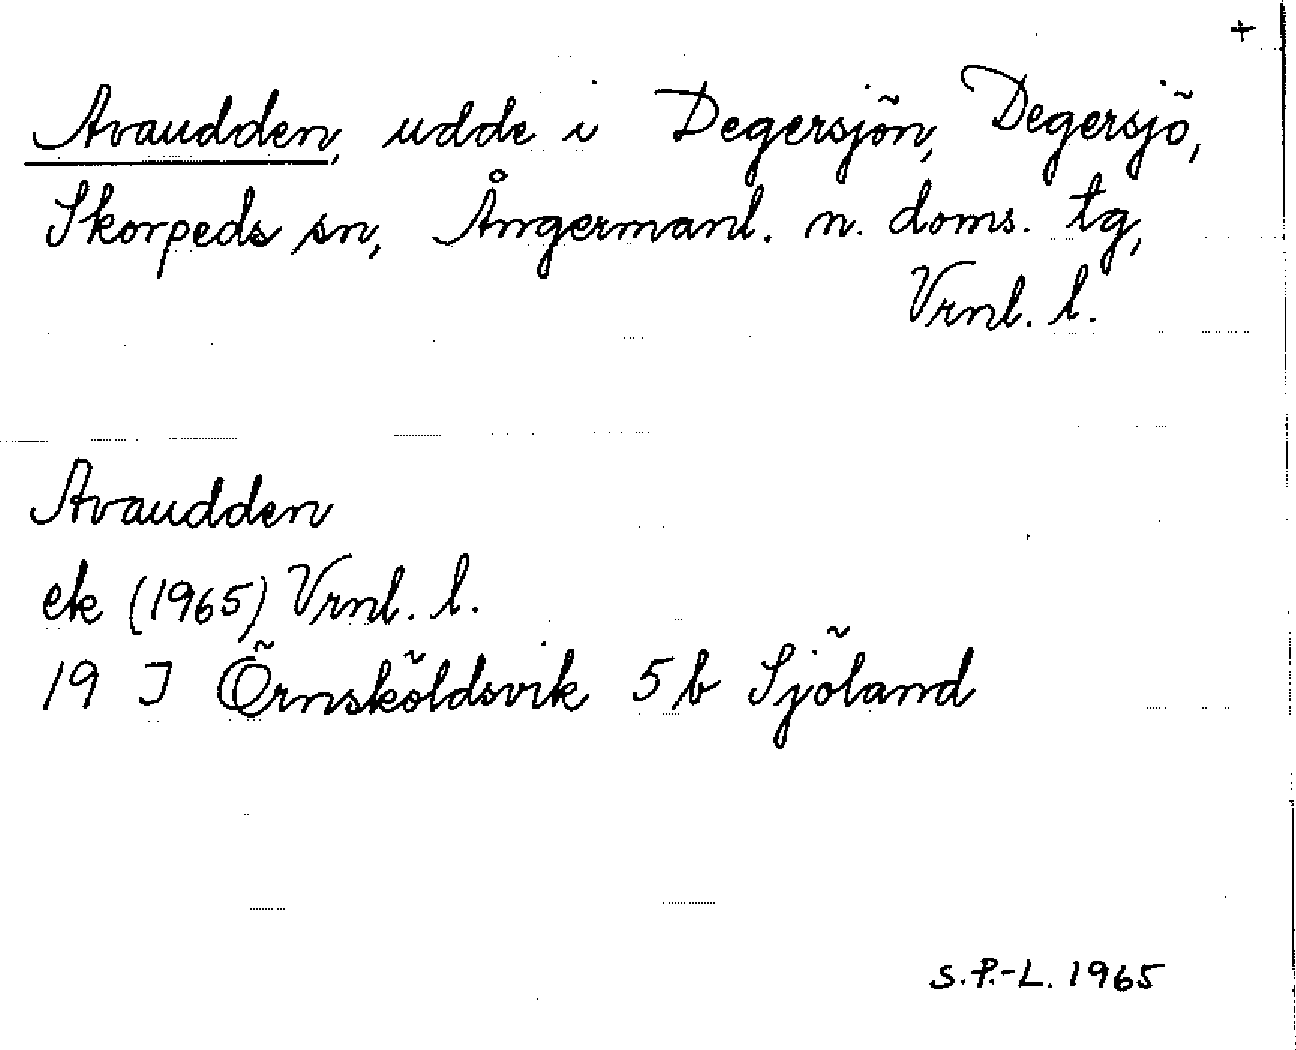 +
Avaudden, udde i Degersjön, Degersjö,
Skorpeds sn, Ångermanl. n. doms. tg,
Vrnl. l.
Avaudden
ek (1965) Vrnl. l.
19 J Örnsköldsvik 5 b Sjöland
S.P.-L. 1965